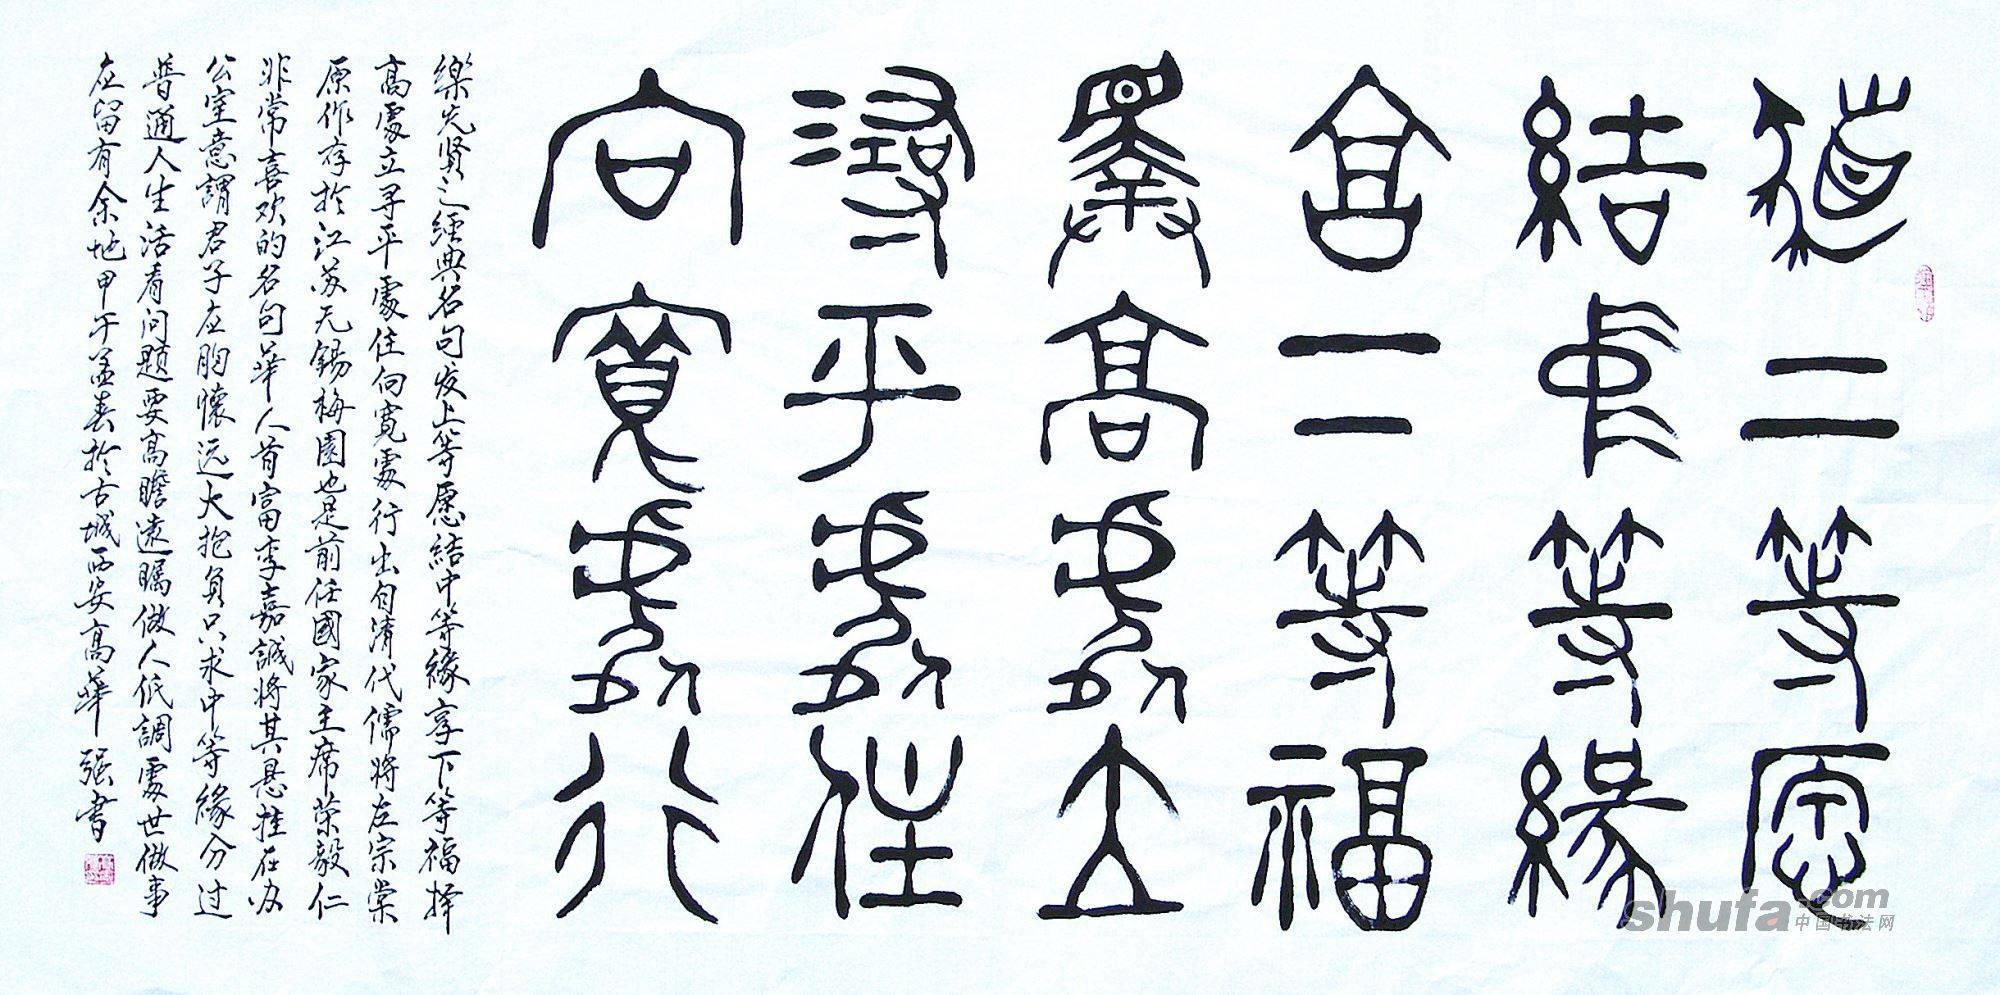 发二等愿
结中等缘
享二等福
择高处立
寻平处住
向宽处行
樂先贤之經典名句发上等愿結中等緣享下等福择
高處立寻平處住向寛處行出自清代儒将左宗棠
原作存於江苏无錫梅園也是前任國家主席荣毅仁
非常喜欢的名句華人首富李嘉誠将其悬挂在办
公室意謂君子应胸懷远大抱負只求中等緣分过
普通人生活看问题要高瞻遠瞩做人低調處世做事
应留有余地甲午孟春於古城西安高華强書
shufa.com
中国书法网